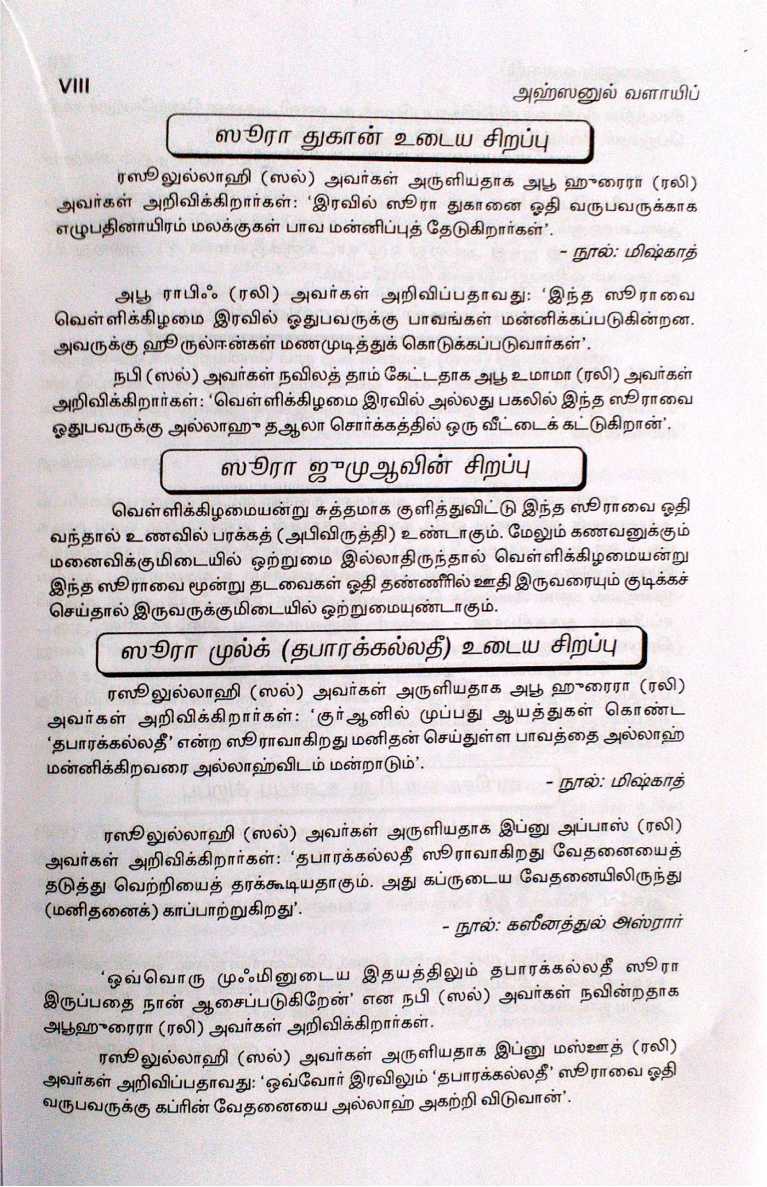 VIII
அஹ்ஸனுல் வளாயிப்
ஸூரா துகான் உடைய சிறப்பு
ரஸூலுல்லாஹி (ஸல்) அவர்கள் அருளியதாக அபூ ஹுரைரா (ரலி)
அவர்கள் அறிவிக்கிறார்கள்: ‘இரவில் ஸூரா துகானை ஓதி வருபவருக்காக
எழுபதினாயிரம் மலக்குகள் பாவ மன்னிப்புத் தேடுகிறார்கள்’.
- நூல்: மிஷ்காத்
அபூ ராபிஃ (ரலி) அவர்கள் அறிவிப்பதாவது: ‘இந்த ஸூராவை
வெள்ளிக்கிழமை இரவில் ஓதுபவருக்கு பாவங்கள் மன்னிக்கப்படுகின்றன.
அவருக்கு ஹூருல்ஈன்கள் மணமுடித்துக் கொடுக்கப்படுவார்கள்’.
நபி (ஸல்) அவர்கள் நவிலத் தாம் கேட்டதாக அபூ உமாமா (ரலி) அவர்கள்
அறிவிக்கிறார்கள்: ‘வெள்ளிக்கிழமை இரவில் அல்லது பகலில் இந்த ஸூராவை
ஓதுபவருக்கு அல்லாஹு தஆலா சொர்க்கத்தில் ஒரு வீட்டைக் கட்டுகிறான்’.
ஸூரா ஜுமுஆவின் சிறப்பு
வெள்ளிக்கிழமையன்று சுத்தமாக குளித்துவிட்டு இந்த ஸூராவை ஓதி
வந்தால் உணவில் பரக்கத் (அபிவிருத்தி) உண்டாகும். மேலும் கணவனுக்கும்
மனைவிக்குமிடையில் ஒற்றுமை இல்லாதிருந்தால் வெள்ளிக்கிழமையன்று
இந்த ஸூராவை மூன்று தடவைகள் ஓதி தண்ணீரில் ஊதி இருவரையும் குடிக்கச்
செய்தால் இருவருக்குமிடையில் ஒற்றுமையுண்டாகும்.
ஸூரா முல்க் (தபாரக்கல்லதீ) உடைய சிறப்பு
ரஸூலுல்லாஹி (ஸல்) அவர்கள் அருளியதாக அபூ ஹுரைரா (ரலி)
அவர்கள் அறிவிக்கிறார்கள்: ‘குர்ஆனில் முப்பது ஆயத்துகள் கொண்ட
‘தபாரக்கல்லதீ’ என்ற ஸூராவாகிறது மனிதன் செய்துள்ள பாவத்தை அல்லாஹ்
மன்னிக்கிறவரை அல்லாஹ்விடம் மன்றாடும்’.
- நூல்: மிஷ்காத்
ரஸூலுல்லாஹி (ஸல்) அவர்கள் அருளியதாக இப்னு அப்பாஸ் (ரலி)
அவர்கள் அறிவிக்கிறார்கள்: ‘தபாரக்கல்லதீ ஸூராவாகிறது வேதனையைத்
தடுத்து வெற்றியைத் தரக்கூடியதாகும். அது கப்ருடைய வேதனையிலிருந்து
(மனிதனைக்) காப்பாற்றுகிறது’.
- நூல்: கஸீனத்துல் அஸ்ரார்
‘ஒவ்வொரு முஃமினுடைய இதயத்திலும் தபாரக்கல்லதீ ஸூரா
இருப்பதை நான் ஆசைப்படுகிறேன்’ என நபி (ஸல்) அவர்கள் நவின்றதாக
அபூஹுரைரா (ரலி) அவர்கள் அறிவிக்கிறார்கள்.
ரஸூலுல்லாஹி (ஸல்) அவர்கள் அருளியதாக இப்னு மஸ்ஊத் (ரலி)
அவர்கள் அறிவிப்பதாவது: ‘ஒவ்வோர் இரவிலும் ‘தபாரக்கல்லதீ’ ஸூராவை ஓதி
வருபவருக்கு கப்ரின் வேதனையை அல்லாஹ் அகற்றி விடுவான்’.